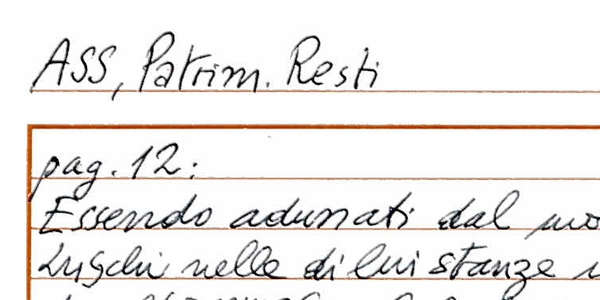 ASS, Patrim. Resti
pag. 12:
Essendo adunati dal
Luschi nelle di lui stanze